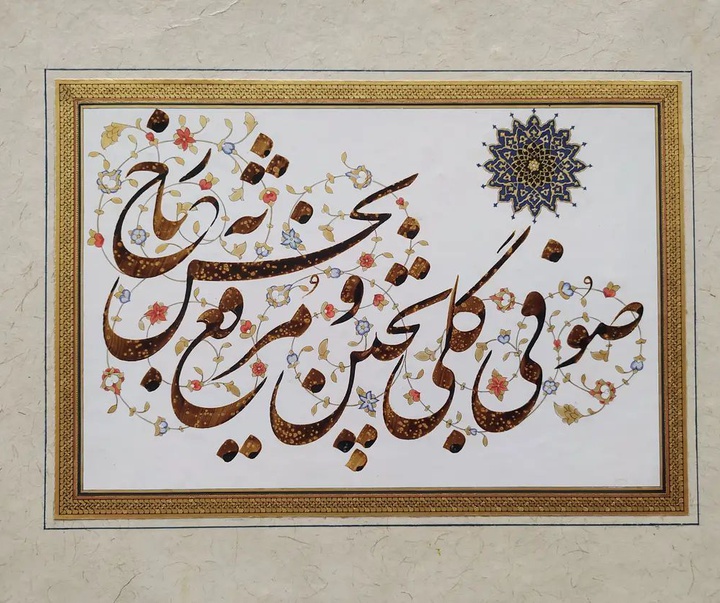 صوفی گلی بچین و مرقع به خار بخش